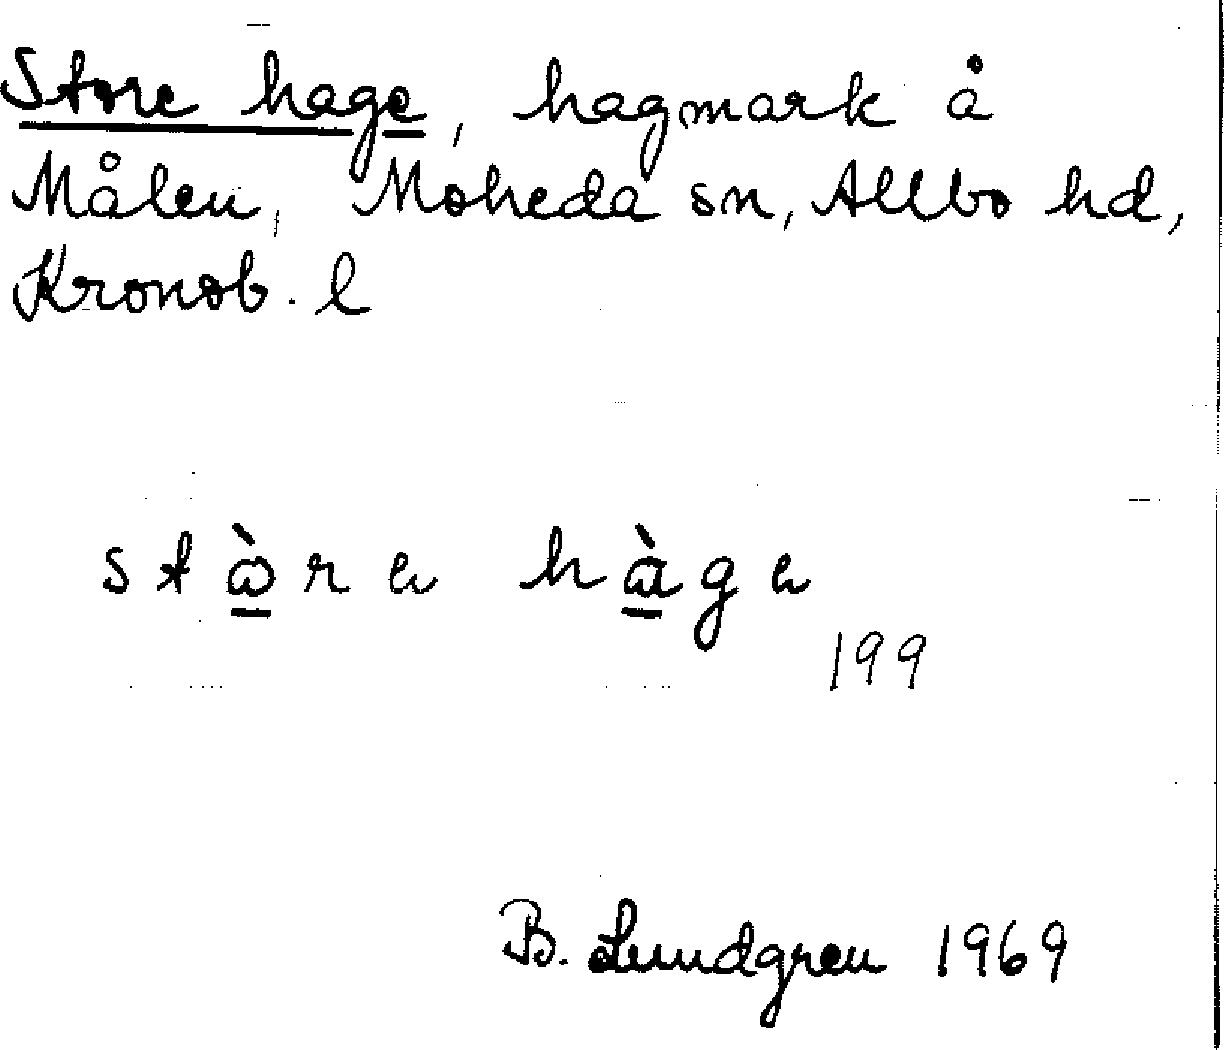 Store hage, hagmark å
Målen, Moheda sn, Allbo hd,
Kronob. l
stὼre hàge
199
B. Lundgren 1969